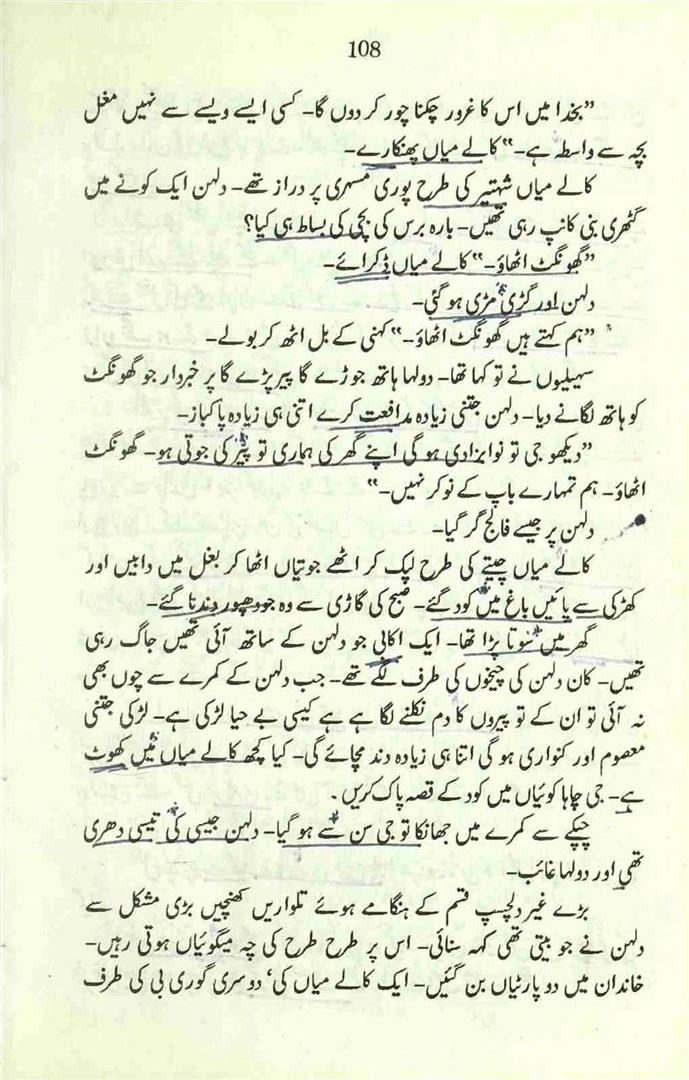 108
”بخدا میں اس کا غرور چکنا چور کر دوں گا۔ کسی ایسے ویسے سے نہیں مغل
بچہ سے واسطہ ہے۔“ کالے میاں پھنکارے۔
کالے میاں شہتیر کی طرح پوری مسہری پر دراز تھے۔ دلہن ایک کونے میں
گٹھری بنی کانپ رہی تھیں۔ بارہ برس کی بچی کی بساط ہی کیا؟
”گھونگٹ اٹھاؤ۔“ کالے میاں ڈکرائے۔
دلہن اور گڑی مڑی ہو گئی۔
”ہم کہتے ہیں گھونگٹ اٹھاؤ۔“ کہنی کے بل اٹھ کر بولے۔
سہیلیوں نے تو کہا تھا۔ دولہا ہاتھ جوڑے گا پیر پڑے گا پر خبردار جو گھونگٹ
کو ہاتھ لگانے دیا۔ دلہن جتنی زیادہ مدافعت کرے اتنی ہی زیادہ پاکباز۔
”دیکھو جی تو نوابزادی ہو گی اپنے گھر کی ہماری تو پیر کی جوتی ہو۔ گھونگٹ
اٹھاؤ۔ ہم تمہارے باپ کے نوکر نہیں۔“
دلہن پر جیسے فالج گر گیا۔
کالے میاں چیتے کی طرح لپک کر اٹھے جوتیاں اٹھا کر بغل میں دابیں اور
کھڑکی سے پائیں باغ میں کود گئے۔ صبح کی گاڑی سے وہ جودھپور دندنا گئے۔
گھر میں سوتا پڑا تھا۔ ایک اکابی جو دلہن کے ساتھ آئی تھیں جاگ رہی
تھیں۔ کان دلہن کی چیخوں کی طرف لگے تھے۔ جب دلہن کے کمرے سے چوں بھی
نہ آئی تو ان کے تو پیروں کا دم نکلنے لگا ہے ہے کیسی بے حیا لڑکی ہے۔ لڑکی جتنی
معصوم اور کنواری ہو گی اتنا ہی زیادہ دند مچائے گی۔ کیا کچھ کالے میاں میں کھوٹ
ہے۔ جی چاہا کوئیاں میں کود کے قصہ پاک کریں۔
چپکے سے کمرے میں جھانکا تو جی سن سے ہو گیا۔ دلہن جیسی کی تیسی دھری
تھی اور دولہا غائب۔
بڑے غیر دلچسپ قسم کے ہنگامے ہوئے تلواریں کھنچیں بڑی مشکل سے
دلہن نے جو بیتی تھی کہہ سنائی۔ اس پر طرح طرح کی چہ میگوئیاں ہوتی رہیں۔
خاندان میں دو پارٹیاں بن گئیں۔ ایک کالے میاں کی‘ دوسری گوری بی کی طرف